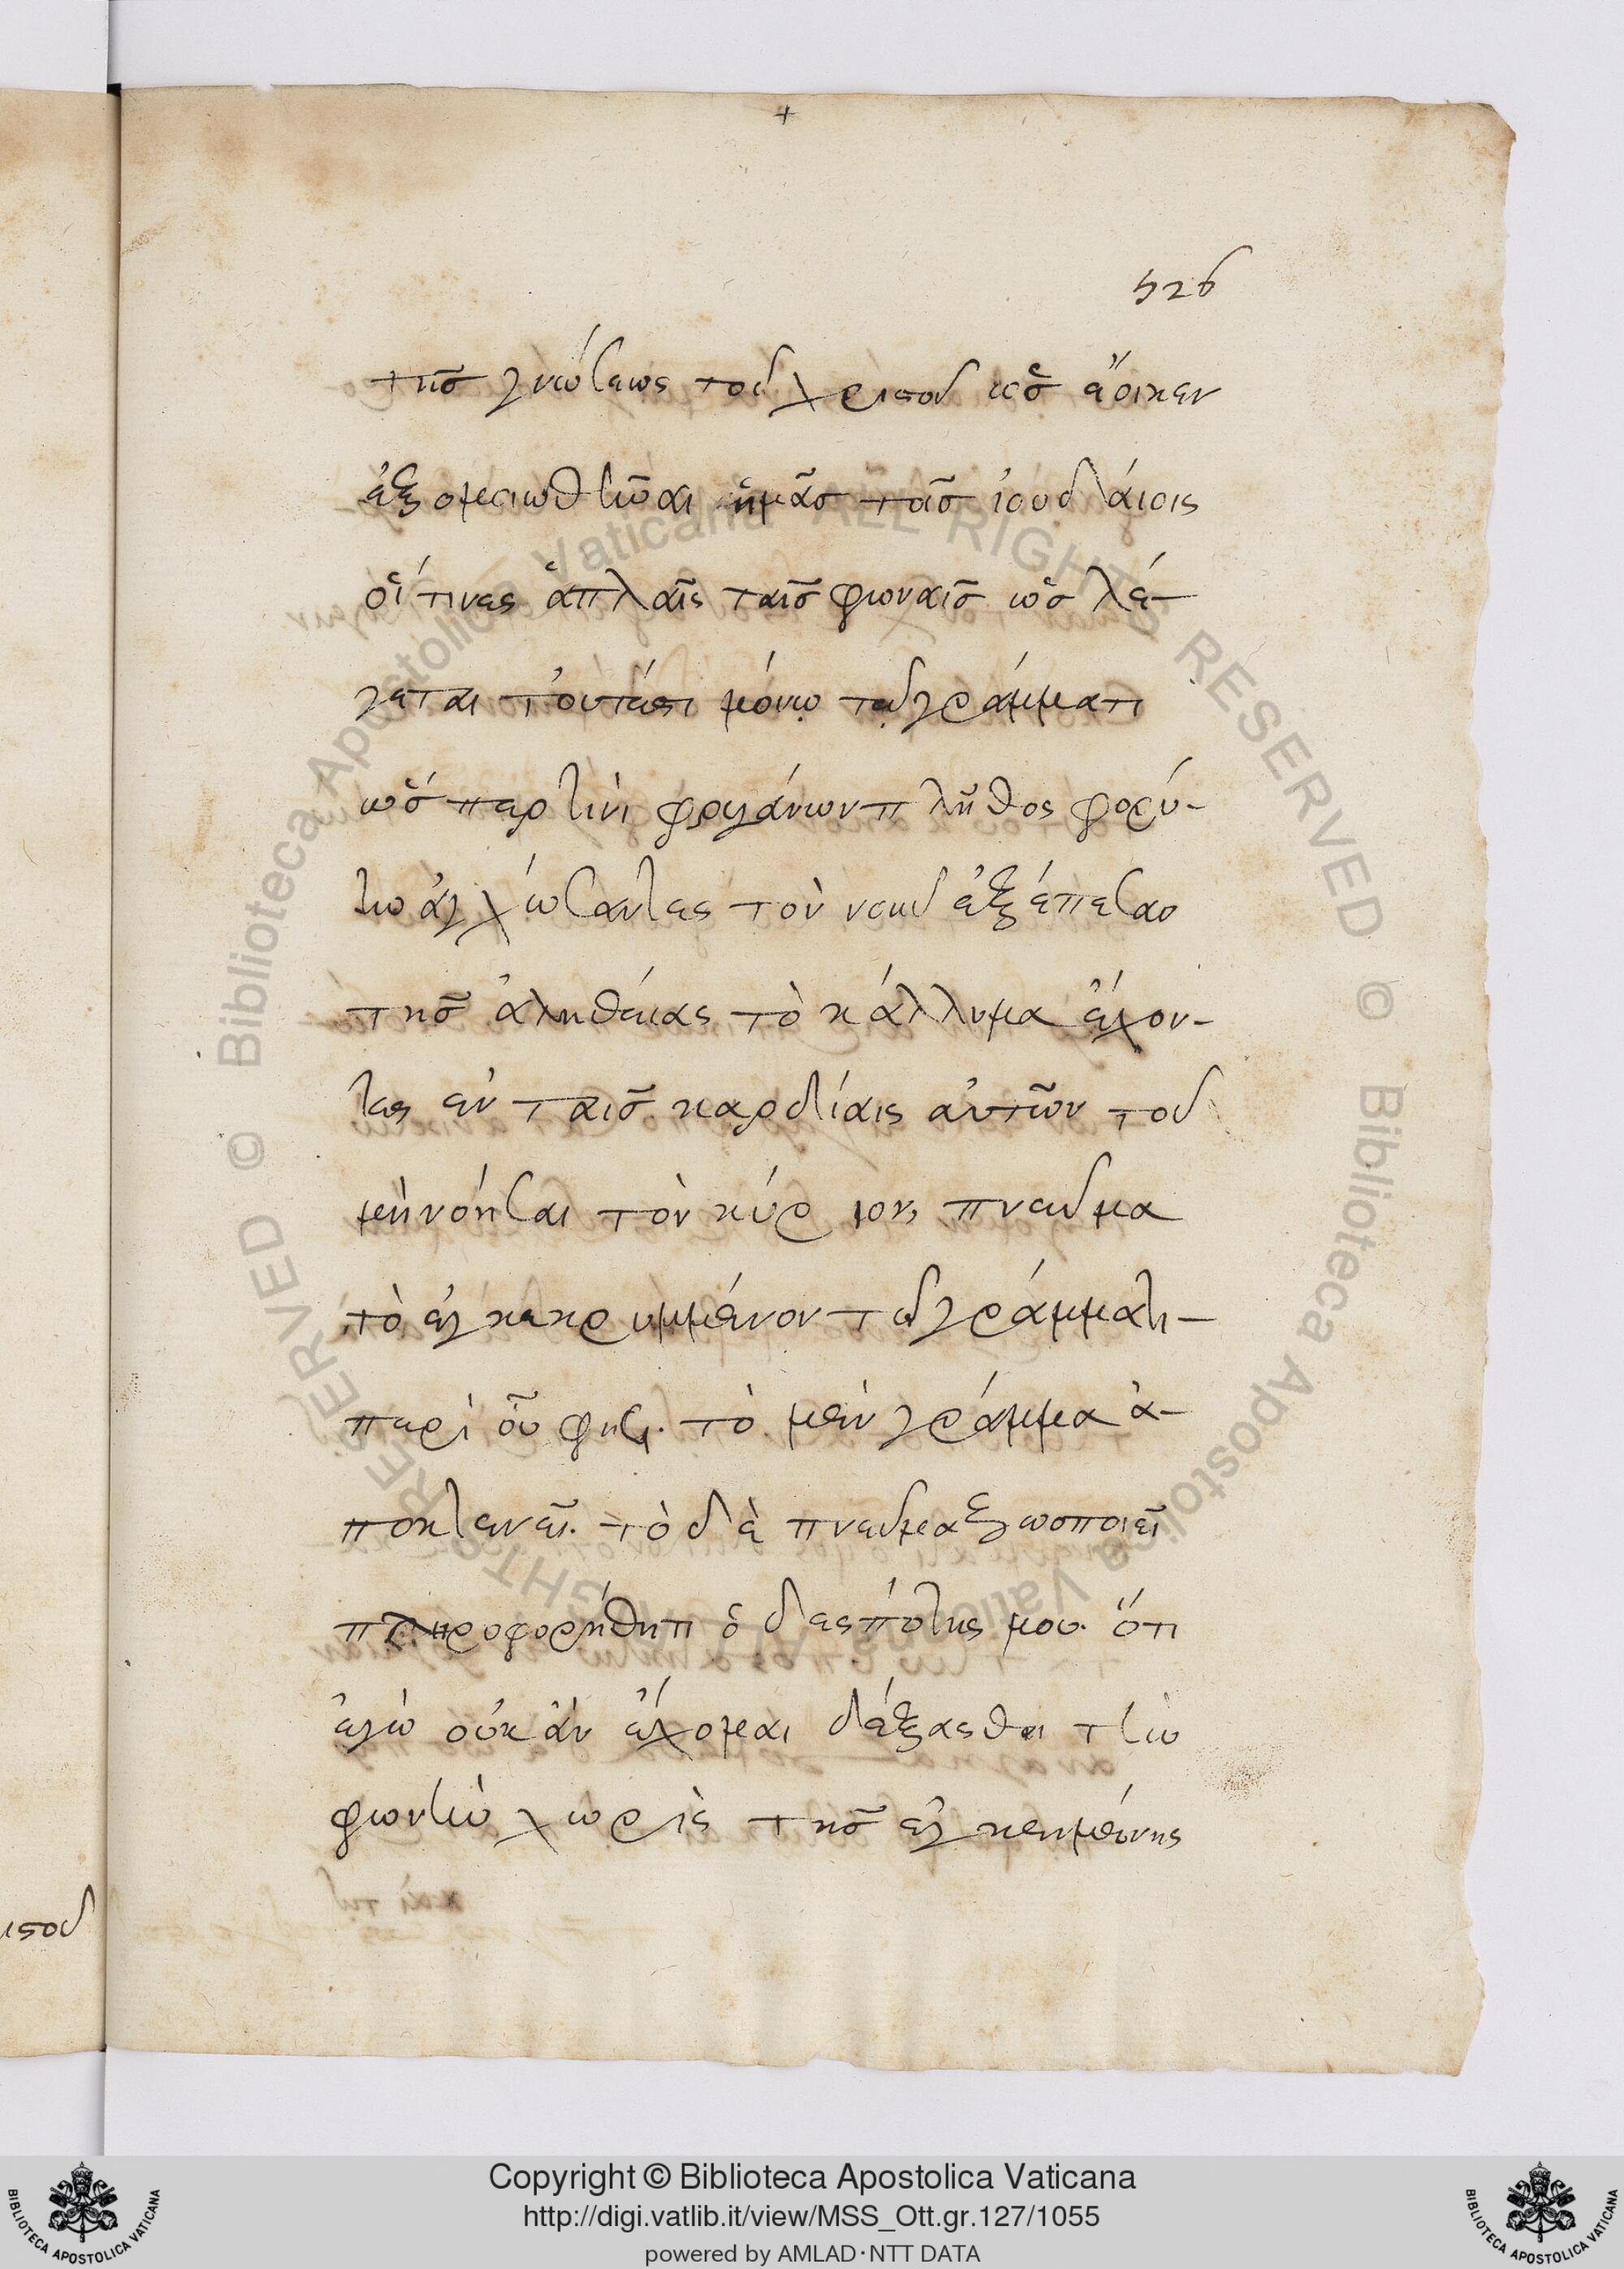 +
526
τῆς γνώσεως τοῦ χριστοῦ ὡς ἔοικεν
ἐξομοιωθῆναι ἡμᾶς τοῖς ἰουδαίοις
οἵτινες ἁπλαῖς ταῖς φωναῖς ὡς λέ-
γεται τουτέστι μόνῳ τῷ γράμματι
ὥσπερ τινὶ φρυγάνων πλῆθος φορύ-
τω ἀγχώσαντες τὸν νοῦν ἐξέπεσαν
τῆς ἀληθείας τὸ κάλλυμα ἔχον-
τες ἐν ταῖς καρδίαις αὐτῶν τοῦ
μὴ νοῆσαι τὸν κύριον, πνεῦμα
τὸ ἐγκεκρυμμένον τῷ γράμματι-
περὶ οὗ φησι. τὸ μὲν γράμμα ἀ-
ποκτενεῖ. τὸ δὲ πνεῦμα ζωοποιεῖ
πληροφορήθητι ὁ δεσπότης μου. ὅτι
ἐγὼ οὐκ ἀν ἔχομαι δέξασθαι τὴν
φωνὴν χωρὶς τῆς ἐγκειμένης
ιστοῦ
Copyright © Biblioteca Apostolica Vaticana
http://digi.vatlib.it/view/MSS_Ott.gr.127/1055
powered by AMLAD·NTT DATA
BIBLIOTECA APOSTOLICA VATICANA
BIBLIOTECA APOSTOLICA VATICANA
© Biblioteca Apostolica Vaticana ALL RIGHTS RESERVED
© Biblioteca Apostolica Vaticana ALL RIGHTS RESERVED